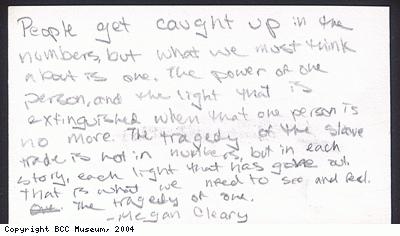 People get caught up in the
numbers, but what we must think
about is one. The power of one
person, and the light that is
extinguished when that one person is
no more. The tragedy of the slave
trade is not in numbers, but in each
story, each light that has gone out.
That is what we need to see and feel.
The tragedy of one.
-Megan Cleary
Copyright BCC Museum, 2004